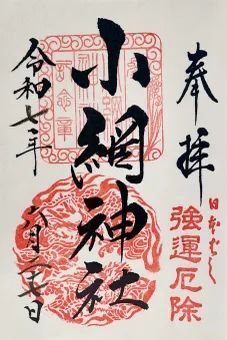 奉拝
日本ばし
強運厄除
小網神社
令和七年
六月二十七日